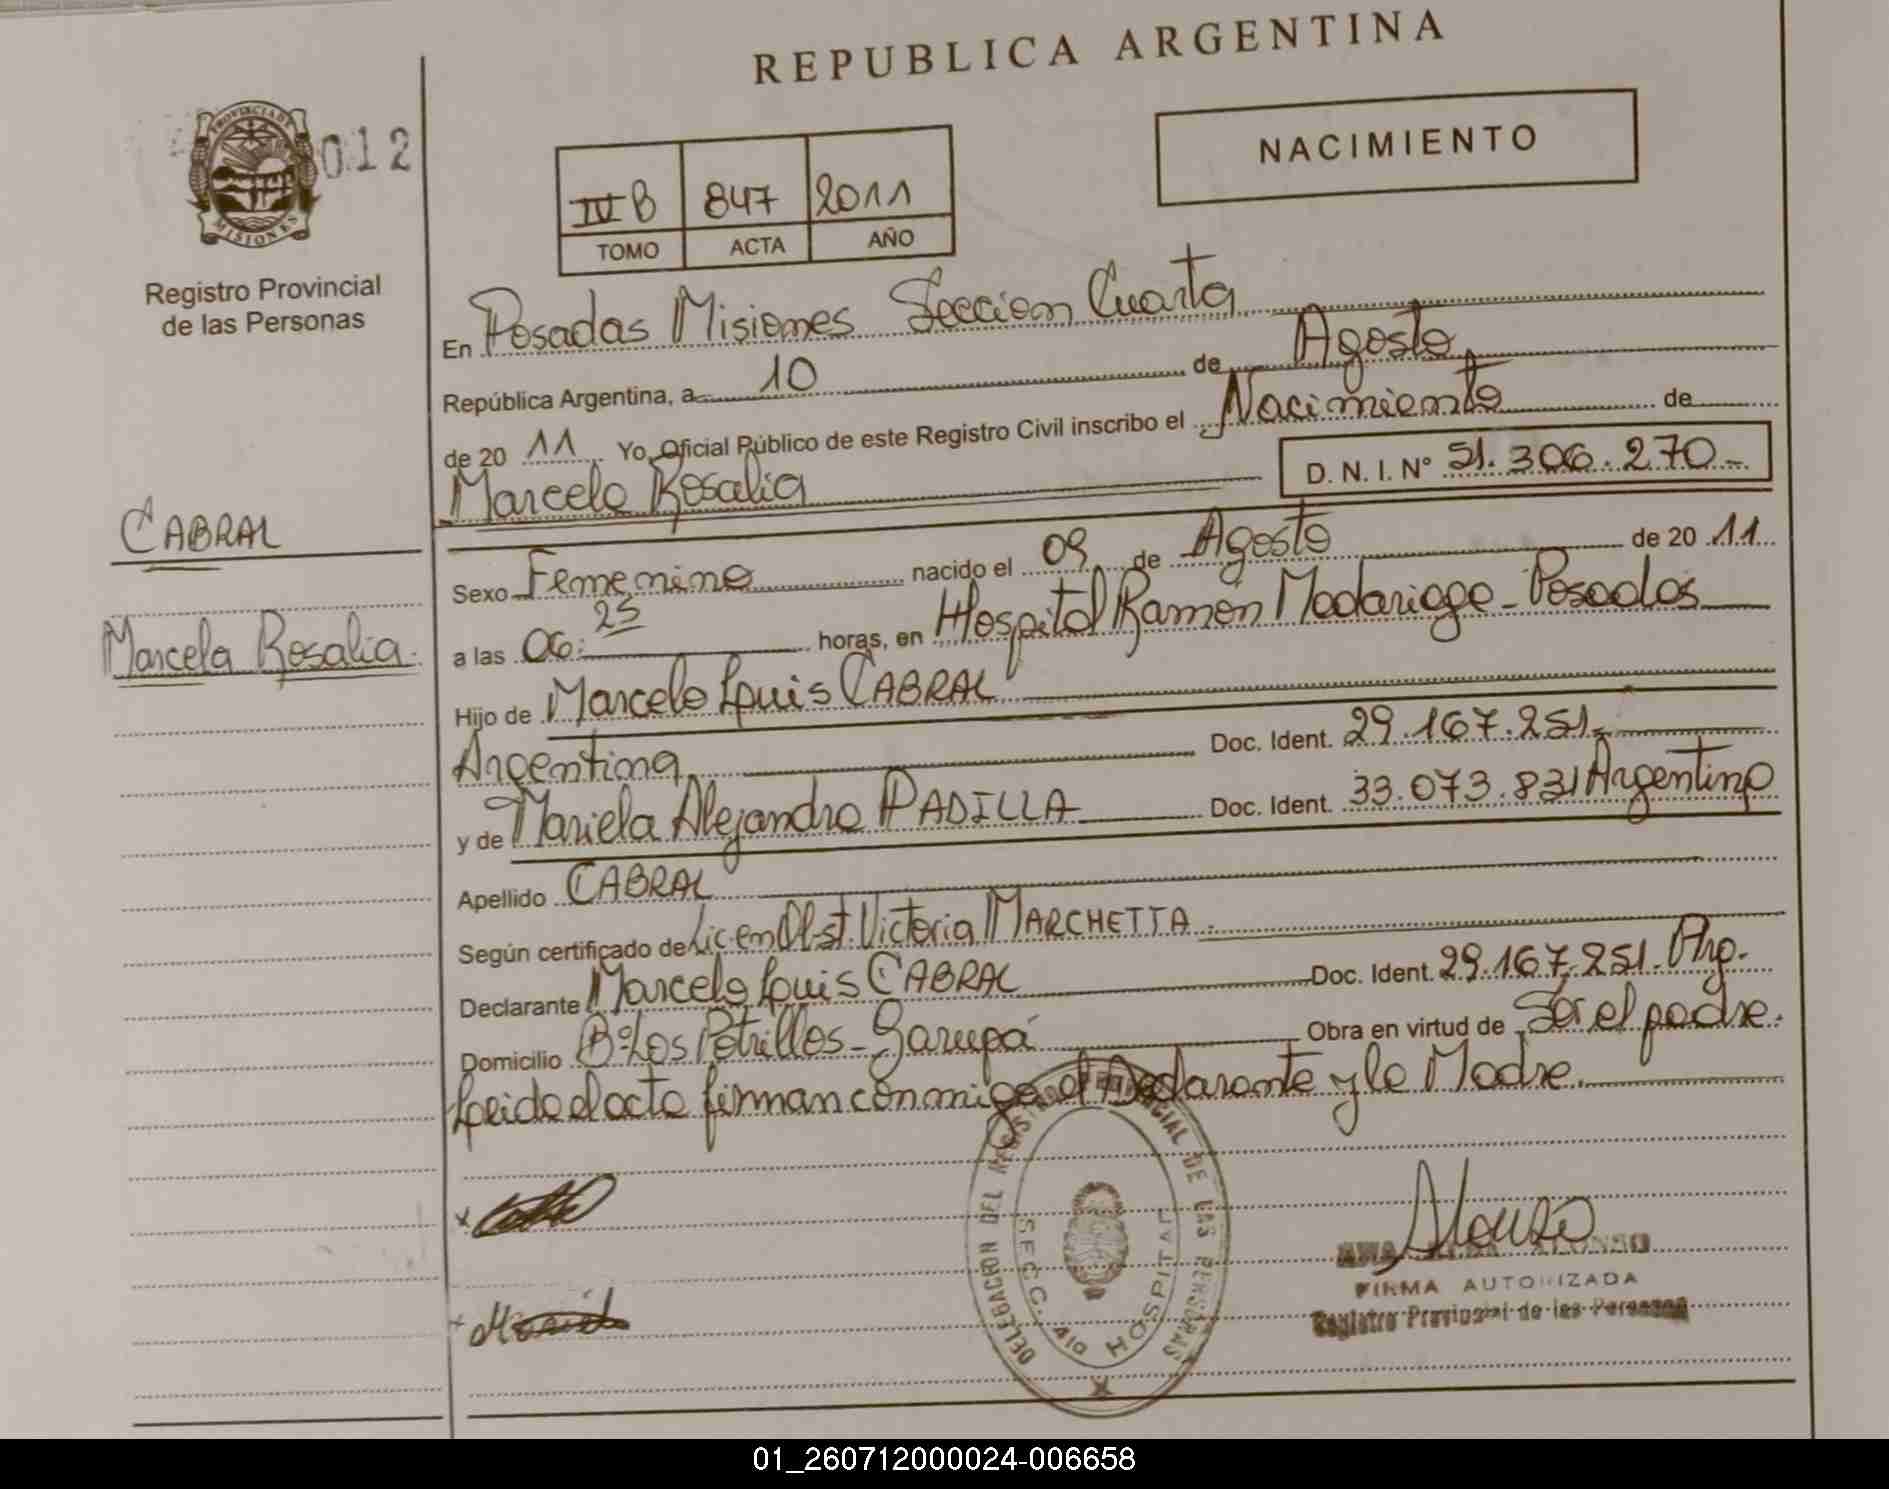 REPUBLICA ARGENTINA
PROVINCIA DE
MISIONES
012
Registro Provincial
de las Personas
NACIMIENTO
IV B 847 2011
TOMO ACTA AÑO
En Posadas Misiones Seccion Cuarta
República Argentina, a 10 de Agosto
de 20 11 Yo, Oficial Público de este Registro Civil inscribo el Nacimiento de
Marcela Rosalia D. N. I. Nº 51.306.270-
CABRAL
Marcela Rosalia.
Sexo Femenino nacido el 09 de Agosto de 20 11
a las 06:25 horas, en Hospital Ramón Madariaga - Posadas
Hijo de Marcelo Luis CABRAL
Argentina Doc. Ident. 29.167.251-
y de Mariela Alejandra PADILLA Doc. Ident. 33.073.831 Argentina
Apellido CABRAL
Según certificado de Lic. en Obst. Victoria MARCHETTA.
Declarante Marcelo Luis CABRAL Doc. Ident. 29.167.251. Arg.
Domicilio Bº Los Potrillos - Garupá Obra en virtud de Ser el padre.
Leido el acta firman conmigo el Declarante y la Madre.
DELEGACION DEL REGISTRO PROVINCIAL DE LAS PERSONAS
SECC. 4ta HOSPITAL
Alonso
ALONSO
FIRMA AUTORIZADA
Registro Provincial de las Personas
01_260712000024-006658